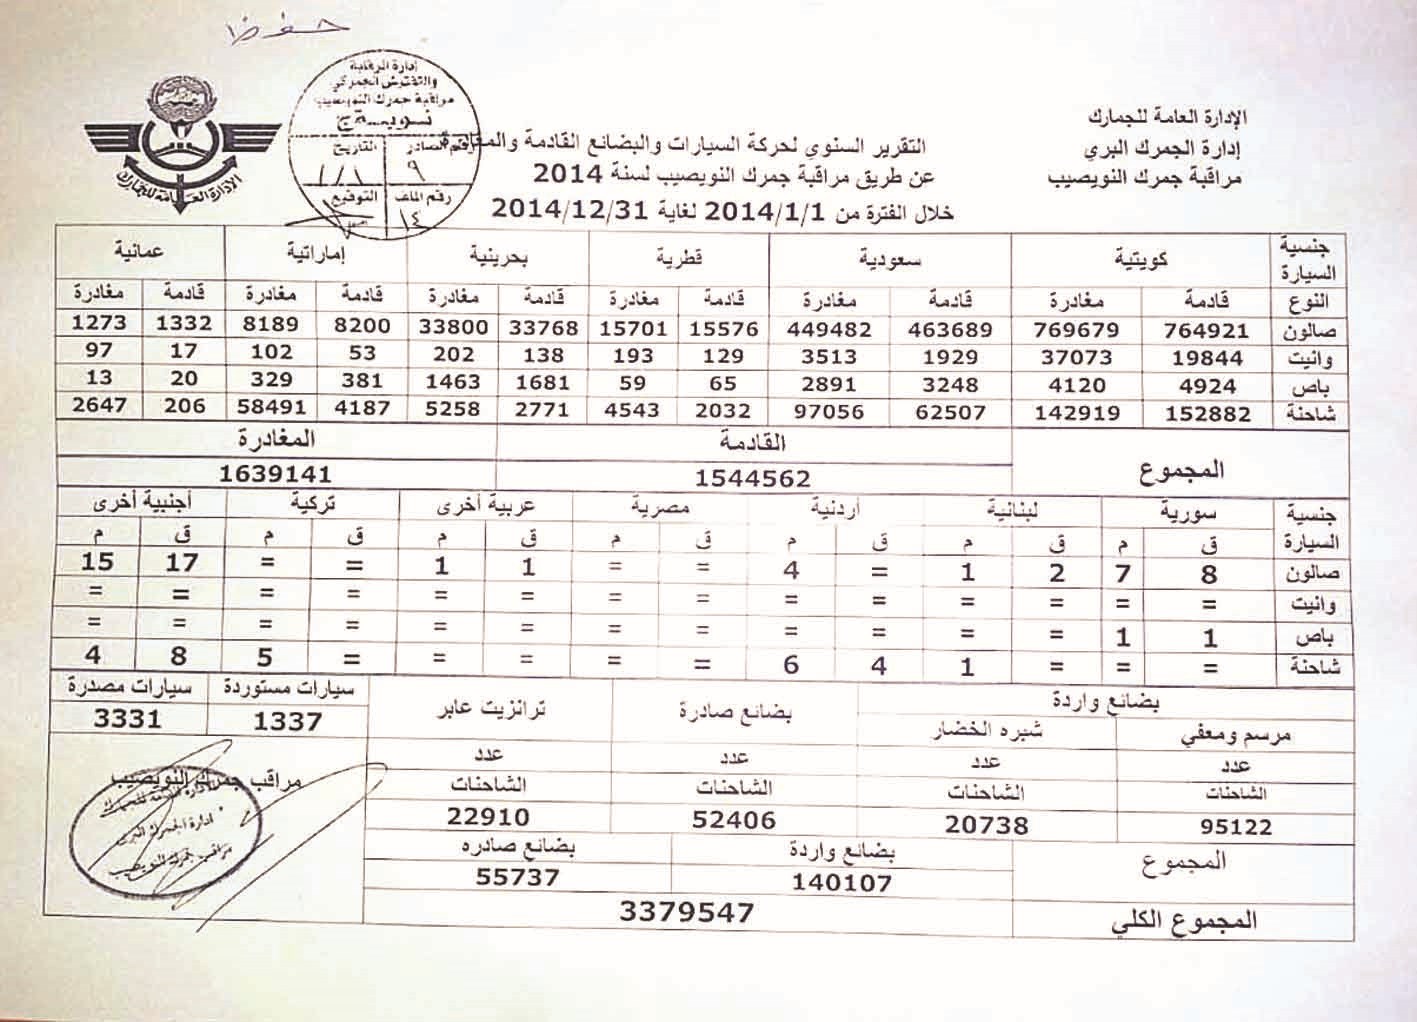 حفظ
الإدارة العامة للجمارك
إدارة الجمرك البري
مراقبة جمرك النويصيب
الإدارة العامة للجمارك
إدارة الرقابة
والتفتيش الجمركي
مراقبة جمرك النويصيب
نويصيب
رقم الصادر التاريخ
٩
رقم الملف التوقيع
١٤
التقرير السنوي لحركة السيارات والبضائع القادمة والمغادرة
عن طريق مراقبة جمرك النويصيب لسنة 2014
خلال الفترة من 2014/1/1 لغاية 2014/12/31
جنسية السيارة كويتية سعودية قطرية بحرينية إماراتية عمانية
النوع قادمة مغادرة قادمة مغادرة قادمة مغادرة قادمة مغادرة قادمة مغادرة قادمة مغادرة
صالون 764921 769679 463689 449482 15576 15701 33768 33800 8200 8189 1332 1273
وانيت 19844 37073 1929 3513 129 193 138 202 53 102 17 97
باص 4924 4120 3248 2891 65 59 1681 1463 381 329 20 13
شاحنة 152882 142919 62507 97056 2032 4543 2771 5258 4187 58491 206 2647
المجموع القادمة المغادرة
1544562 1639141
جنسية السيارة سورية لبنانية أردنية مصرية عربية أخرى تركية أجنبية أخرى
ق م ق م ق م ق م ق م ق م ق م
صالون 8 7 2 1 = 4 = = 1 1 = = 17 15
وانيت = = = = = = = = = = = = = =
باص 1 1 = = = = = = = = = = = =
شاحنة = = = 1 4 6 = = = = = 5 8 4
بضائع واردة بضائع صادرة ترانزيت عابر سيارات مستوردة سيارات مصدرة
1337 3331
مرسم ومعفي شبره الخضار
عدد عدد عدد عدد
الشاحنات الشاحنات الشاحنات الشاحنات
95122 20738 52406 22910
المجموع بضائع واردة بضائع صادره
140107 55737
المجموع الكلي 3379547
مراقب جمرك النويصيب
الإدارة العامة للجمارك
إدارة الجمرك البري
مراقب جمرك النويصيب